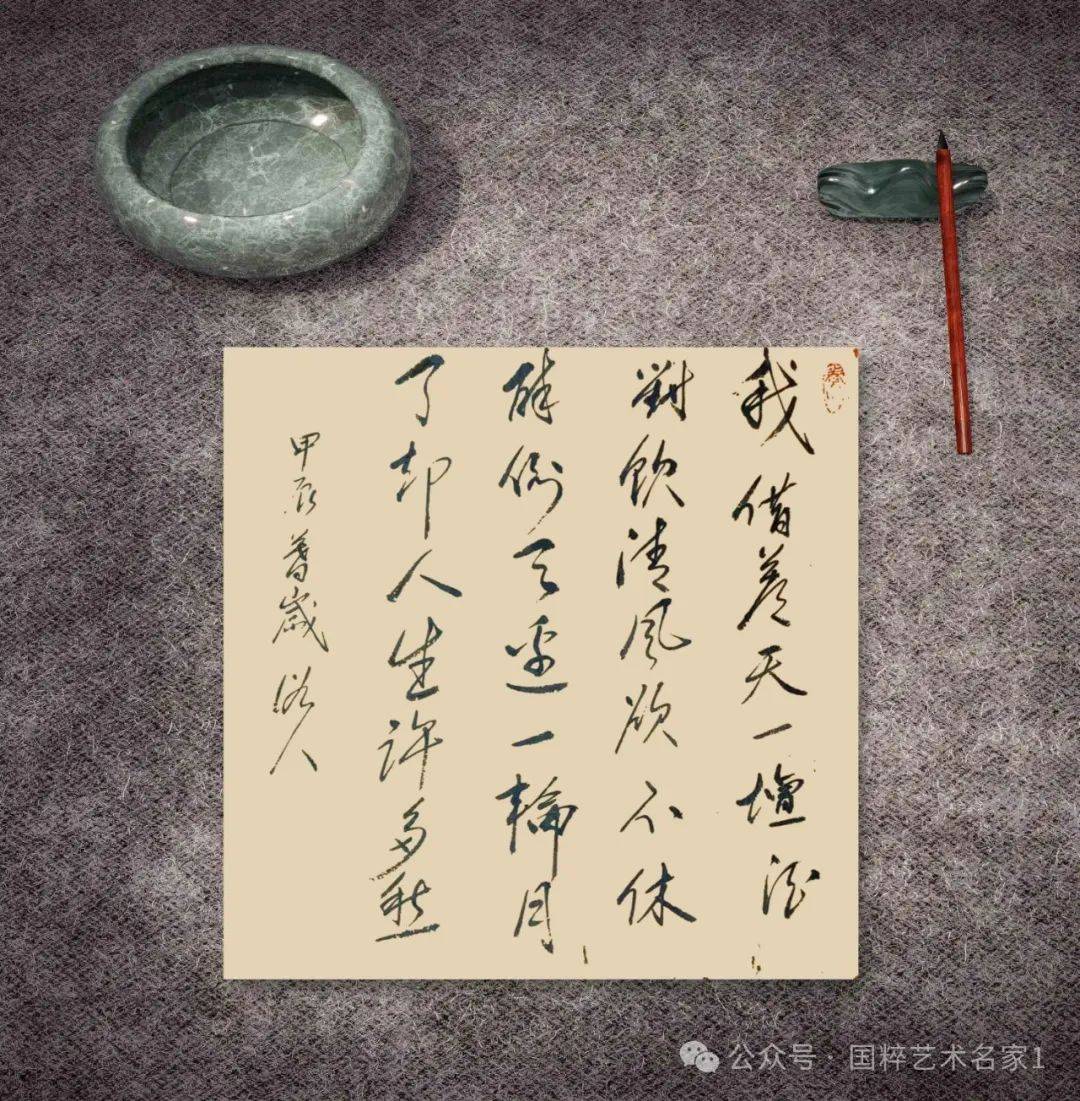 我借蒼天一壇酒
對飲清風欲不休
醉倒邊一輪月
了却人生許多愁
甲辰暮歲 俗人
公众号 · 国粹艺术名家1